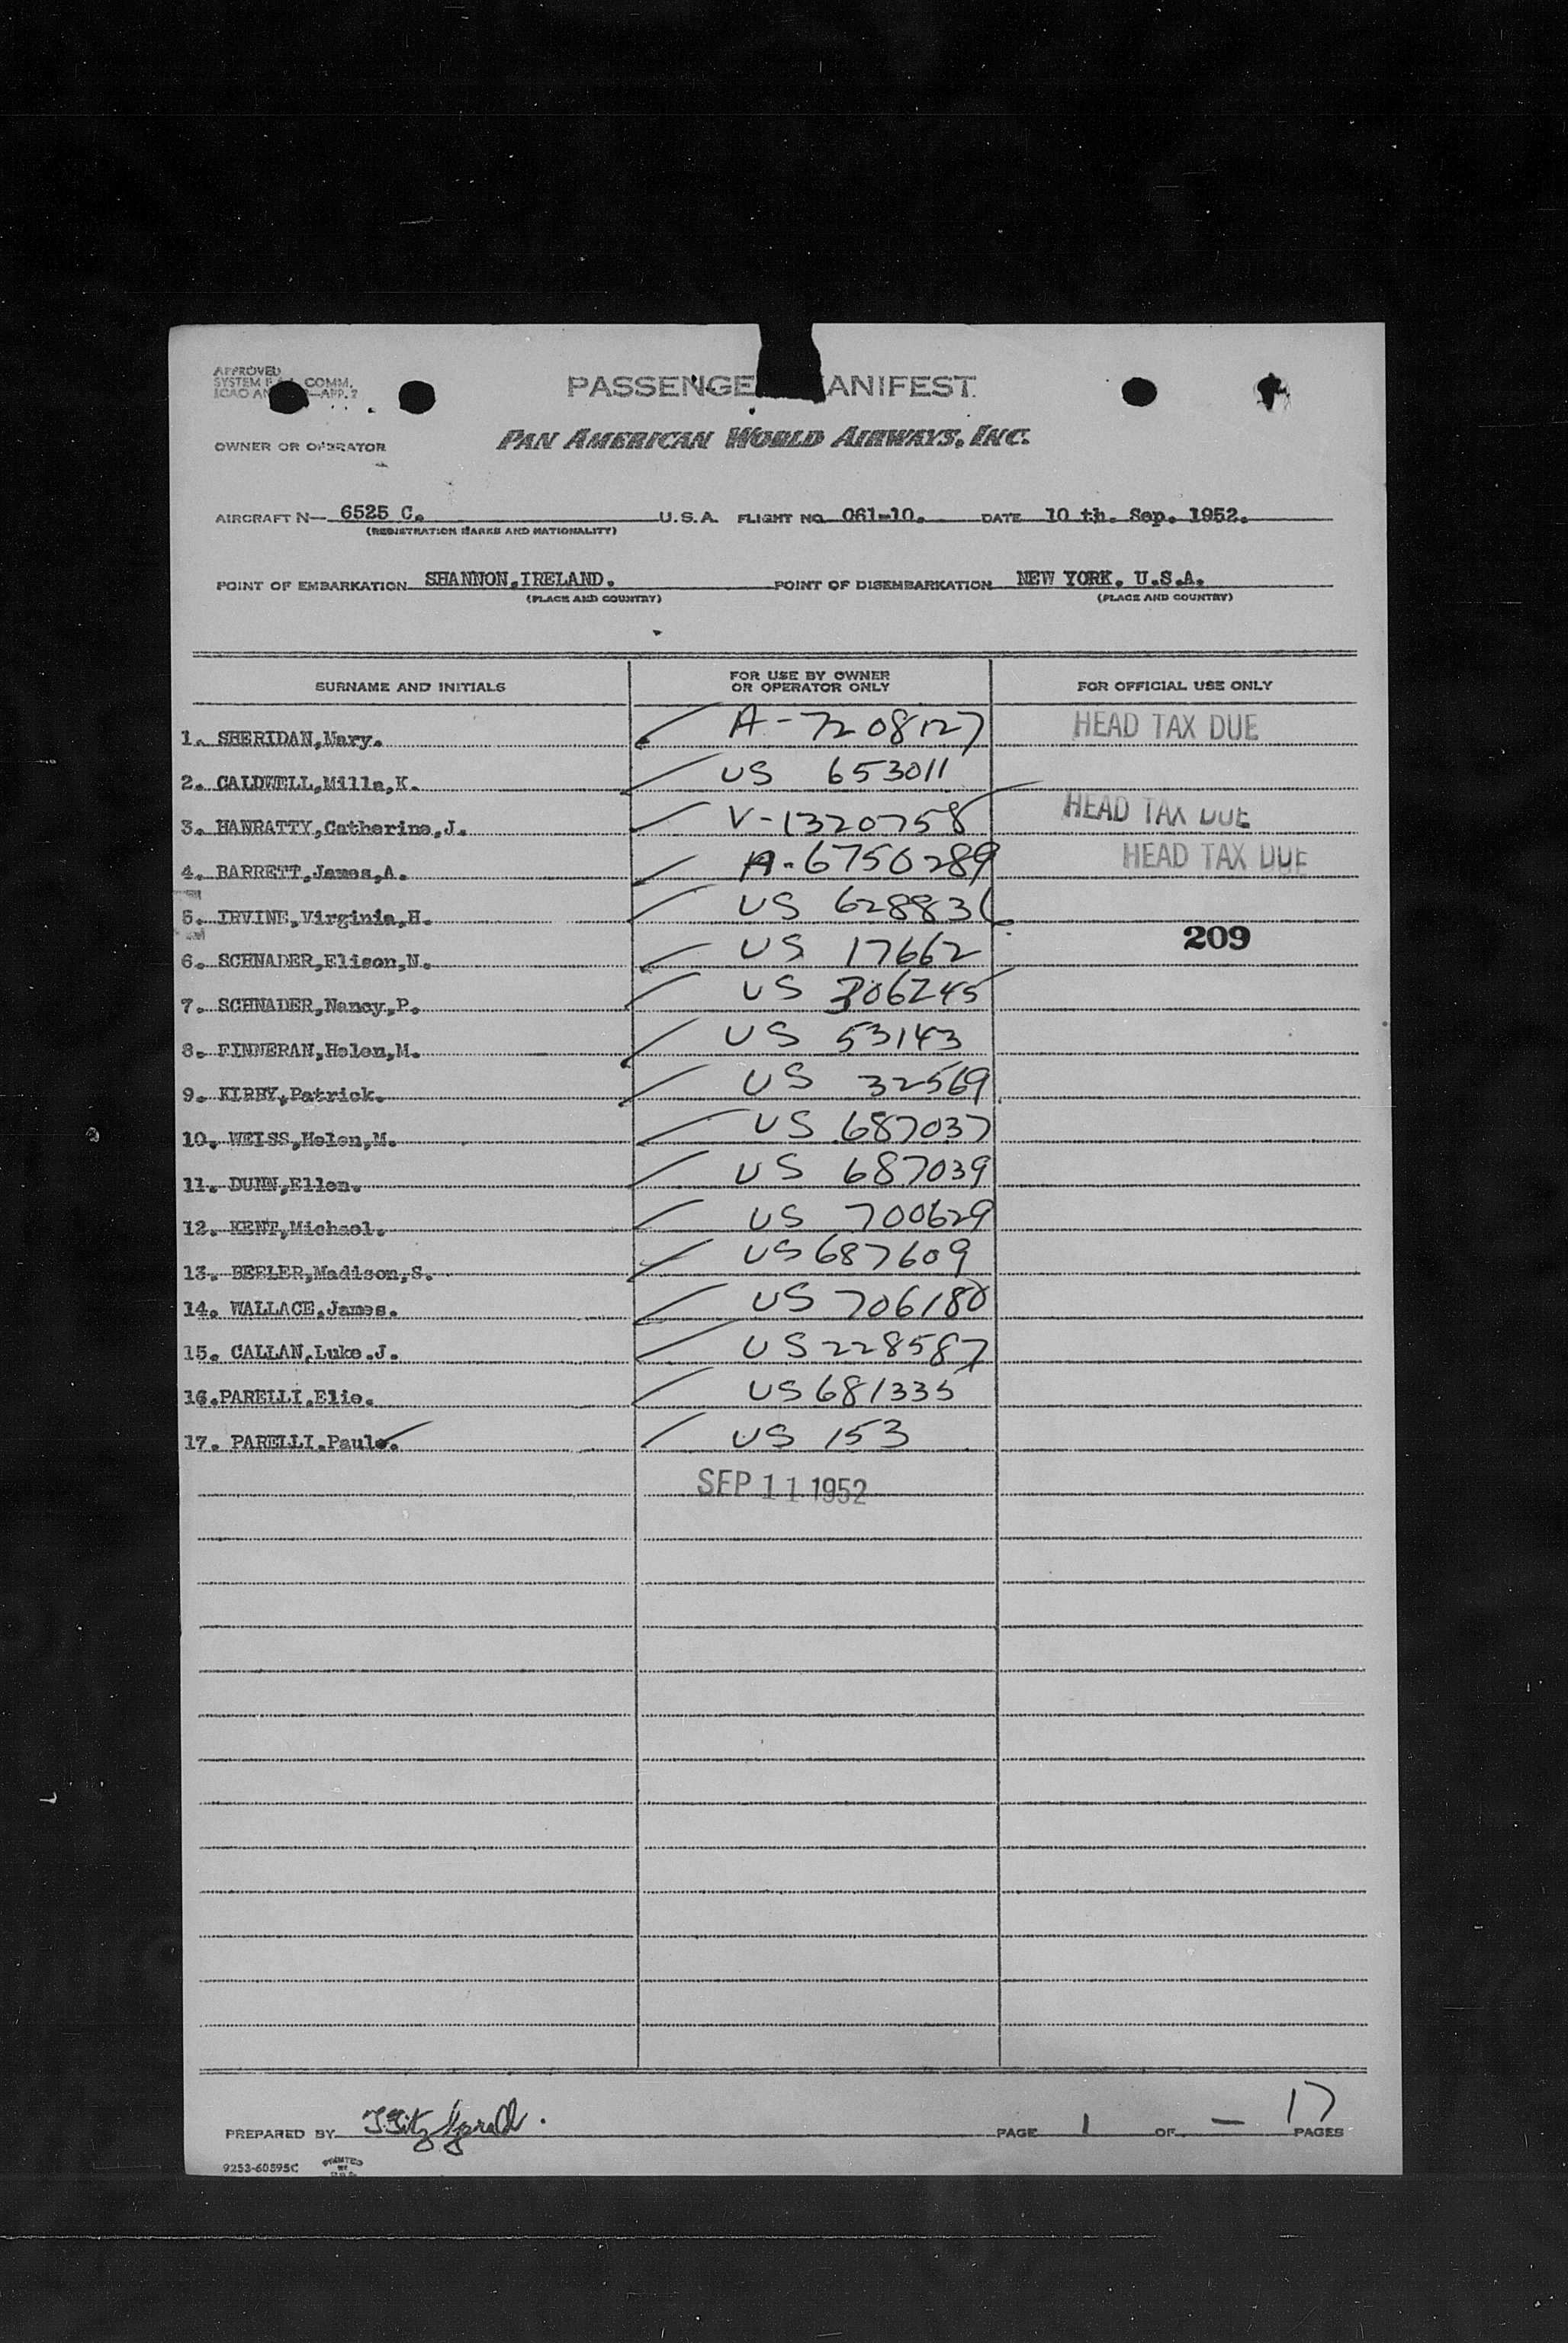 APPROVED
SYSTEM COMM.
ICAO APP. 2
PASSENGE ANIFEST
OWNER OR OPERATOR PAN AMERICAN WORLD AIRWAYS, INC.
AIRCRAFT N— 6525 C. U.S.A. FLIGHT NO. 061-10. DATE 10 th. Sep. 1952.
(REGISTRATION MARKS AND NATIONALITY)
POINT OF EMBARKATION SHANNON,IRELAND. POINT OF DISEMBARKATION NEW YORK. U.S.A.
(PLACE AND COUNTRY) (PLACE AND COUNTRY)
SURNAME AND INITIALS FOR USE BY OWNER OR OPERATOR ONLY FOR OFFICIAL USE ONLY
1. SHERIDAN,Mary. A-7208127 HEAD TAX DUE
2. CALDWELL,Milla,K. US 653011
3. HANRATTY,Catherine,J. V-1320758 HEAD TAX DUE
4. BARRETT,James,A. A-6750289 HEAD TAX DUE
5. IRVINE,Virginia,H. US 628831
209
6. SCHNADER,Elison,N. US 17662
7. SCHNADER,Nancy,P. US 306245
8. FINNERAN,Helen,M. US 53143
9. KIRBY,Patrick. US 32569
10. WEISS,Helen,M. US 687037
11. DUNN,Ellen. US 687039
12. KENT,Michael. US 700629
13. BEELER,Madison,S. US 687609
14. WALLACE.James. US 706180
15. CALLAN,Luke.J. US 228587
16.PARELLI.Elie. US 681335
17. PARELLI.Paule. US 153
SEP 11 1952
PREPARED BY T. Fitzgerald. PAGE 1 OF — 17 PAGES
9253-60895C PRINTED IN